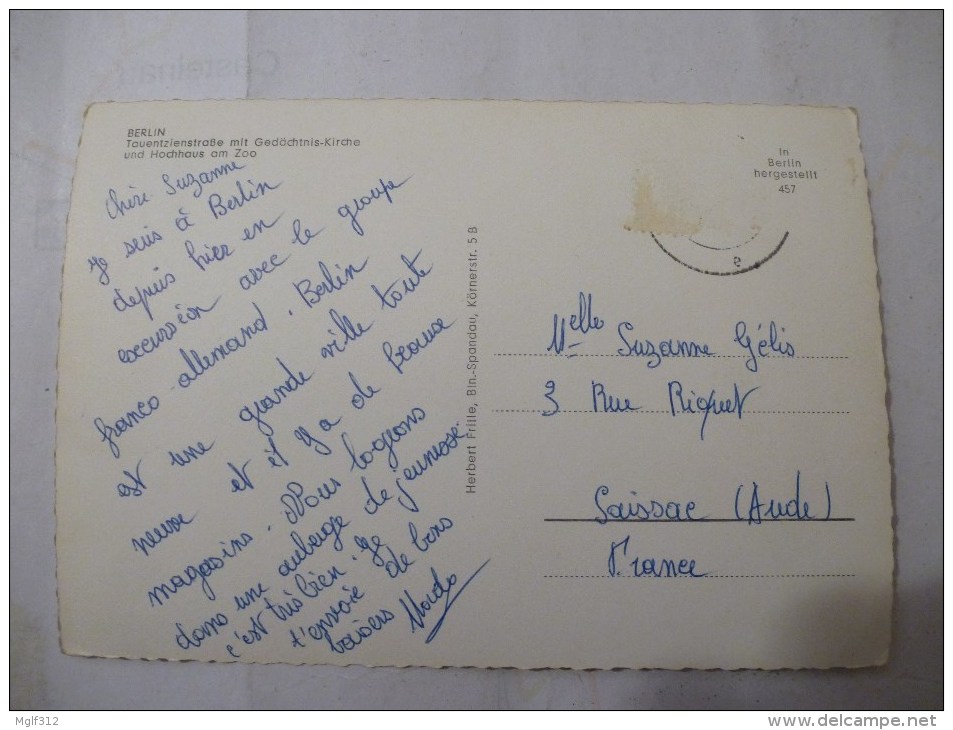 BERLIN
Tauentzienstraße mit Gedächtnis-Kirche
und Hochhaus am Zoo
In
Berlin
hergestellt
457
Chère Suzanne
Je suis à Berlin
depuis hier en
excursion avec le groupe
franco-allemand. Berlin
est une grande ville toute
neuve et il y a de beaux
magasins. Nous logeons
dans une auberge de jeunesse.
c'est très bien. Je
t'envoie de bons
baisers
Herbert Frille, Bln.-Spandau, Körnerstr. 5 B
Melle Suzanne Gélis
3 Rue Riquet
Saissac (Aude)
France
Mglf312
delcampe.net